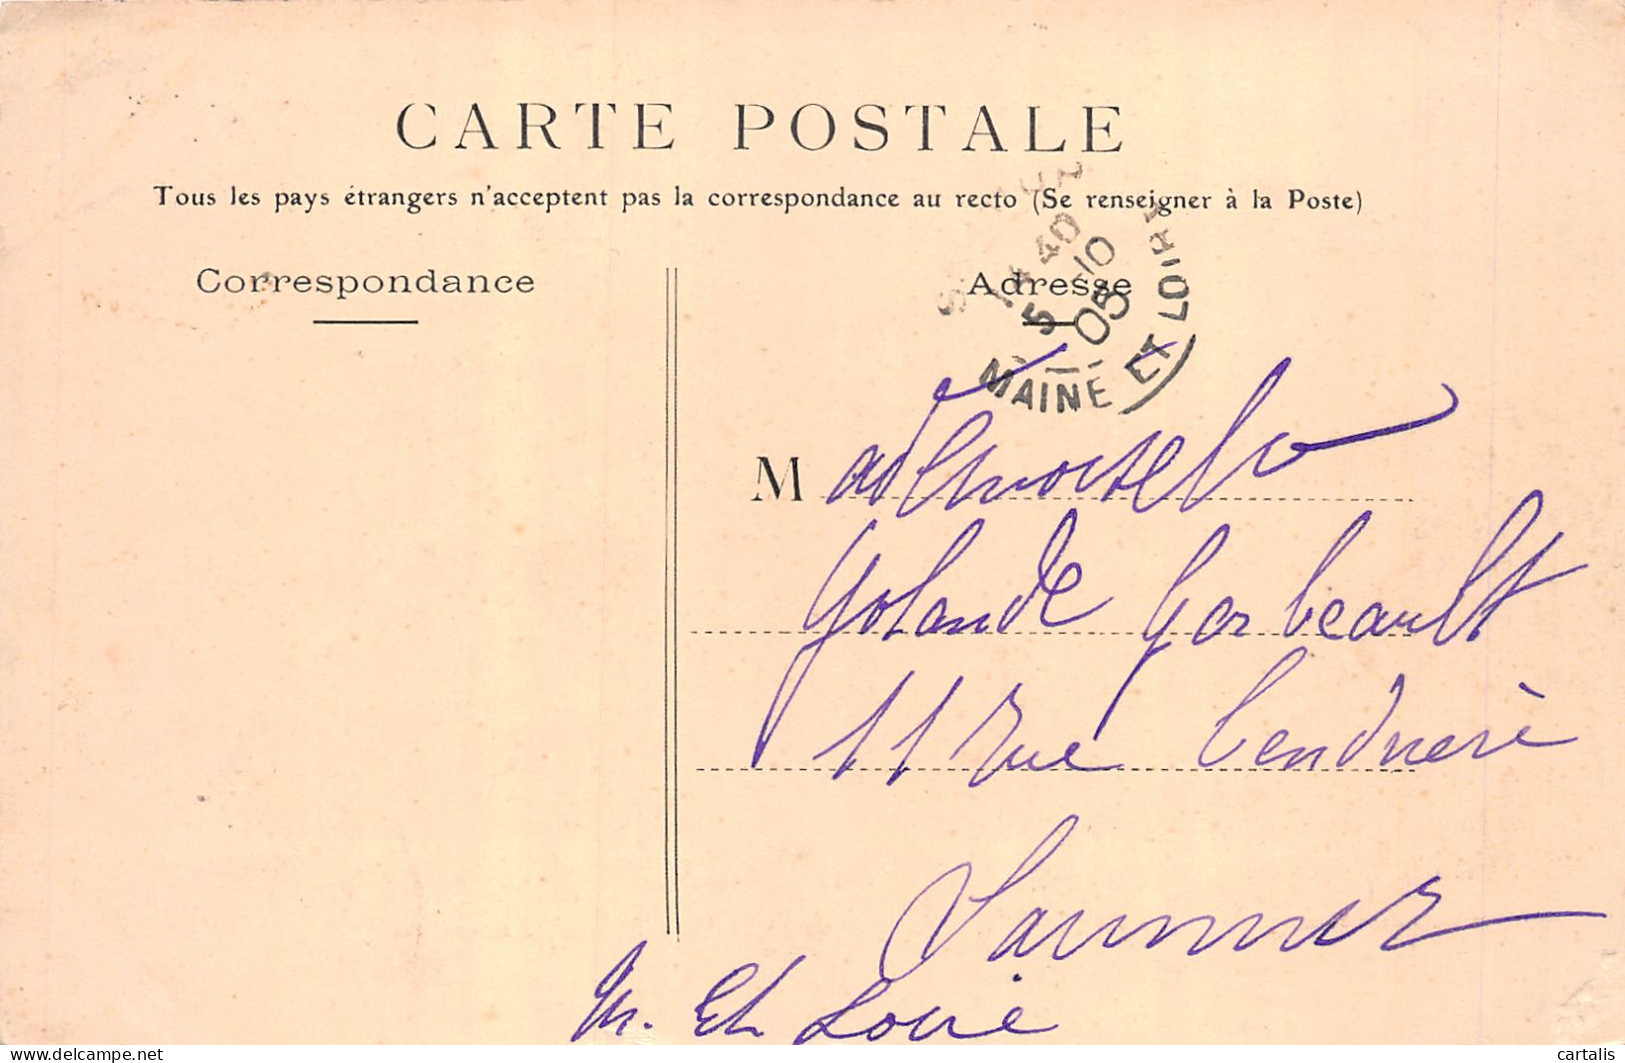 CARTE POSTALE
Tous les pays étrangers n'acceptent pas la correspondance au recto (Se renseigner à la Poste)
Correspondance
Adresse
14 40
5 -10
05
MAINE ET LOIRE
Mademoiselle
Yolande Gerbeault
11 rue Cendriere
Saumur
M. Et Loire
delcampe.net
cartalis